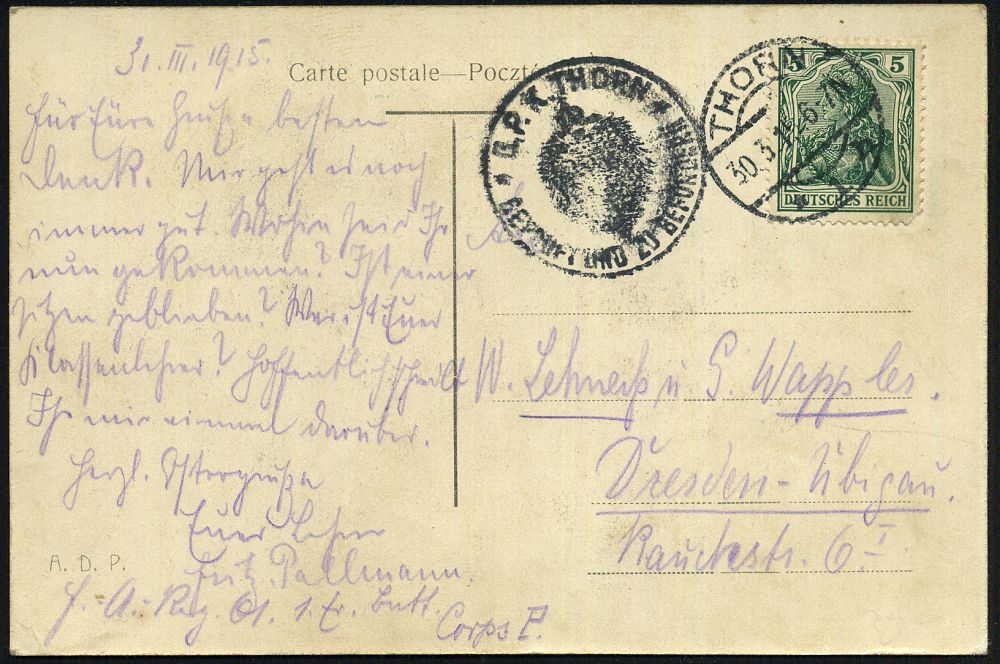 31. III. 1915.
Carte postale—Poczt
Für Eure Grüße besten
Dank. Mir geht es noch
immer gut. Wohin seid Ihr
nun gekommen? Ist einer
sitzen geblieben? Wer ist Euer
Klassenlehrer? Hoffentlich schreibt
Ihr mir einmal darüber.
Herzl. Ostergrüße
Euer Lehrer
Fritz Pallmann.
F.-A.-Reg. 61. 1. Batt.
Corps P.
A. D. P.
Ü. P. K. THORN
GEPRÜFT UND ZU BEFÖRDERN
THORN
30.3.15.6-7N
5 5
DEUTSCHES REICH
An
W. Lehneiß u G. Wappler.
Dresden-Übigau.
Rauchstr. 6 I.